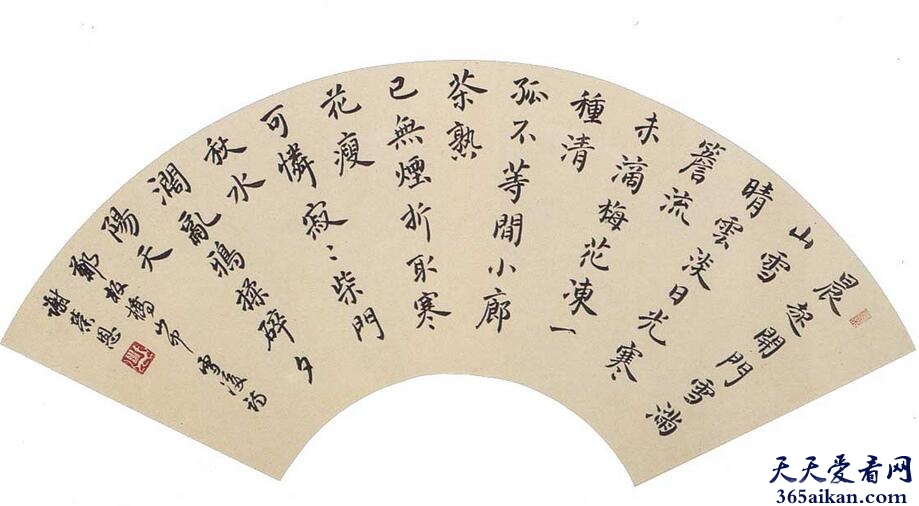 晨起開門雪滿
山雪
晴雲淡日光寒
簷流
未滴梅花凍一
種清
孤不等閒小廊
茶熟
已無煙折取寒
花瘦
可憐寂〻柴門
秋水
闊亂鴉揉碎夕
陽天
鄭板橋山中雪後詩
謝榮恩
天天爱看网
365aikan.com